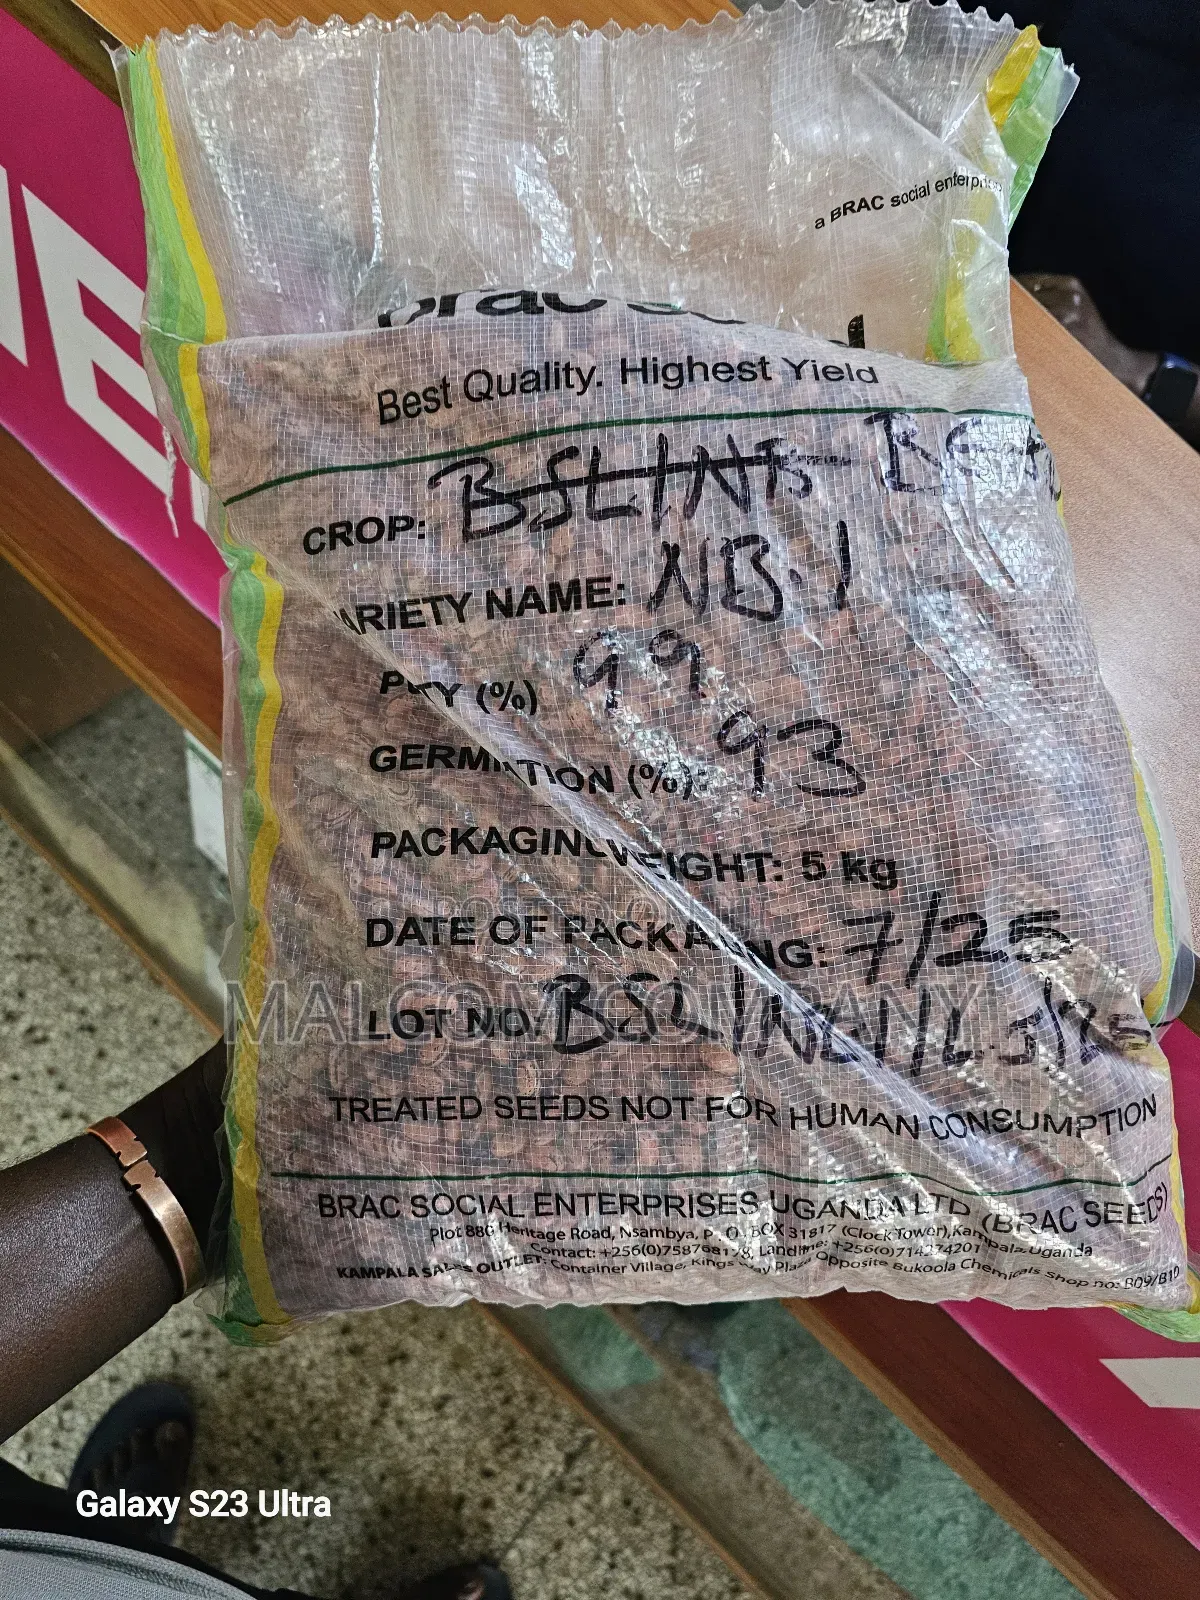 a BRAC social enterprise
brac
Best Quality. Highest Yield
CROP: BSL/NB
VARIETY NAME: NB.1
PU TY (%) 99
GERMI TION (%): 93
PACKAGING WEIGHT: 5 kg
DATE OF PACKAGING: 7/25
LOT NO: BSL/
MALCOM COMPANY
TREATED SEEDS NOT FOR HUMAN CONSUMPTION
BRAC SOCIAL ENTERPRISES UGANDA LTD (BRAC SEEDS)
Plot 880 Heritage Road, Nsambya, P. O. BOX 31817 (Clock Tower), Kampala Uganda
Contact: Landline: +256(0)714274201
KAMPALA SALES OUTLET: Container Village, Kings Way Plaza Opposite Bukoola Chemicals Shop no: B09/B10
VE
Galaxy S23 Ultra